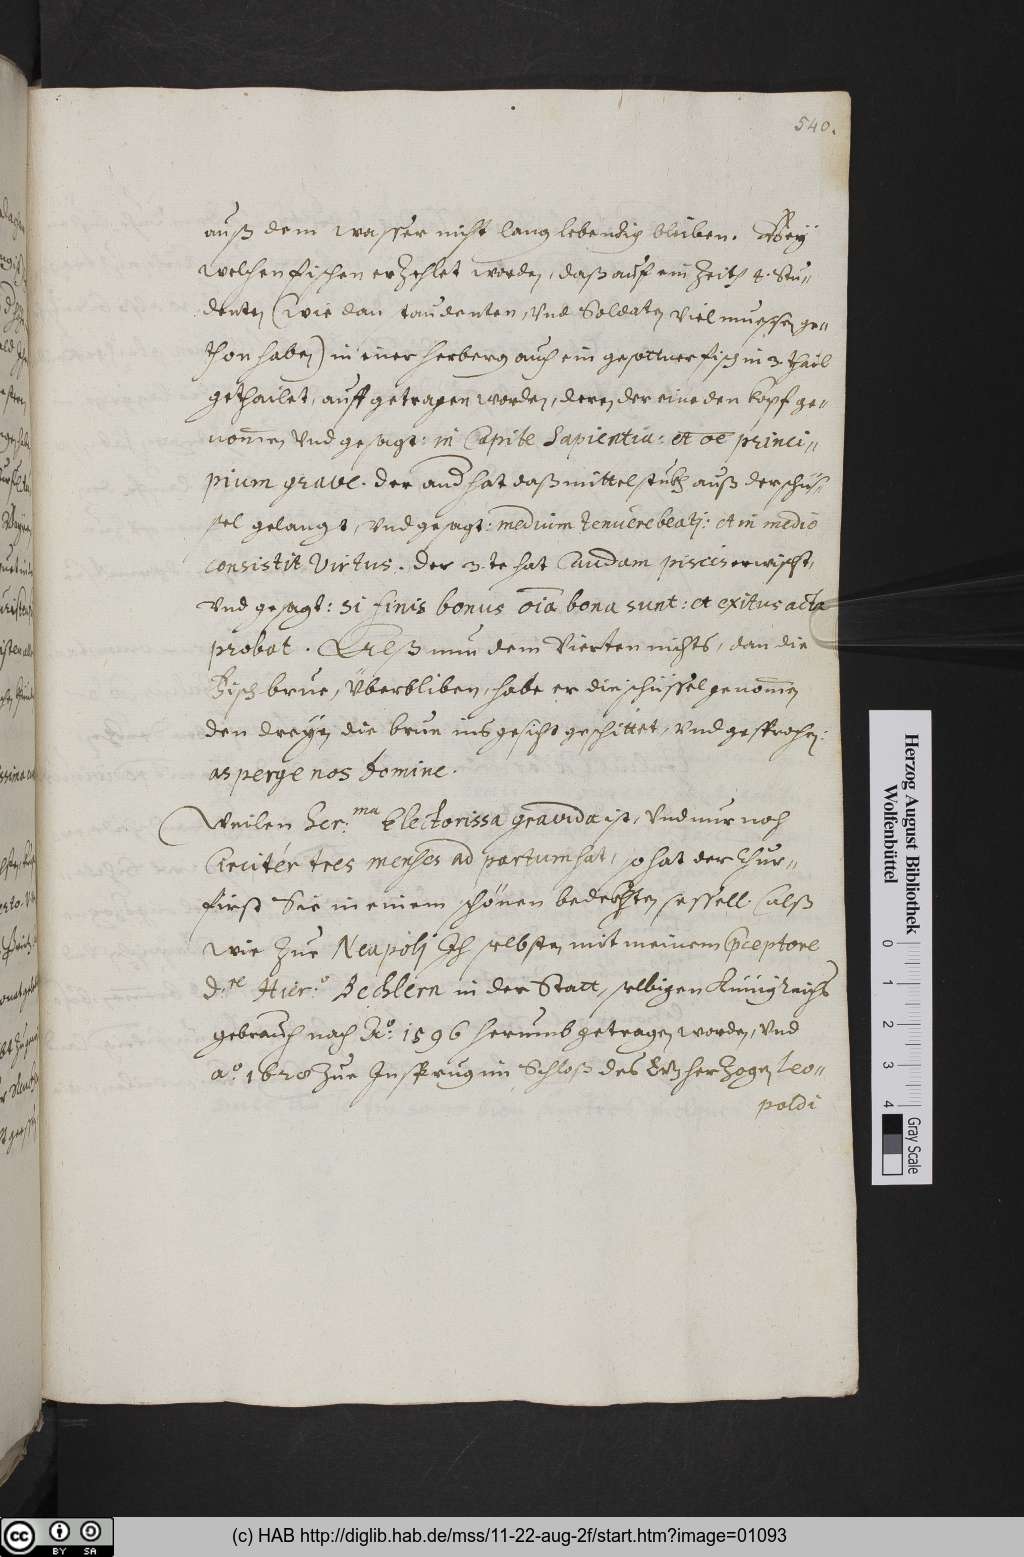 540.
auß dem wasser nicht lang lebendig bliben. Bey
welchen fischen erzehlet worden, daß auf ein Zeith 4. Stu-
denten (wie dan studenten, vnd Soldaten viel muessen ge-
thon haben) in einer herberg auch ein gesottner fisch in 3. thail
gethailet, aufgetragen worden, deren der eine den kopf ge-
nommen vnd gesagt: in Capite Sapientia: et oe princi-
pium grave. der and hat daß mittelstukh auß der schüs-
sel gelangt, vnd gesagt: medium tenuere beatj: et in medio
consistit virtus. der 3.te hat Caudam piscis erwischt,
vnd gesagt: si finis bonus oia bona sunt: et exitus acta
probat. Alß nun dem Vierten nichts, dan die
Fischbrue, überbliben, habe er die schüssel genommen
den dreyen die brue ins gesicht geschittet, vnd gesprochen:
asperge nos domine.
Weilen Ser:ma Electorissa gravida ist, vnd nur noch
Circiter tres menses ad partum hat, so hat der Chur-
first Sie in einem schönen bedeckhten sessell (alß
wie zue Neapolj Ich selbsten mit meinem Pceptore
d:re Hier:o Bechlern in der Statt, selbigen Künigraichs
gebrauch nach Ao: 1596 herumb getragen worden, vnd
Ao: 1628 zue Insprug im Schloß des Erzherzogen Leo-
poldi
Herzog August Bibliothek
Wolfenbüttel
0 1 2 3 4
Gray Scale
cc BY SA
(c) HAB http://diglib.hab.de/mss/11-22-aug-2f/start.htm?image=01093